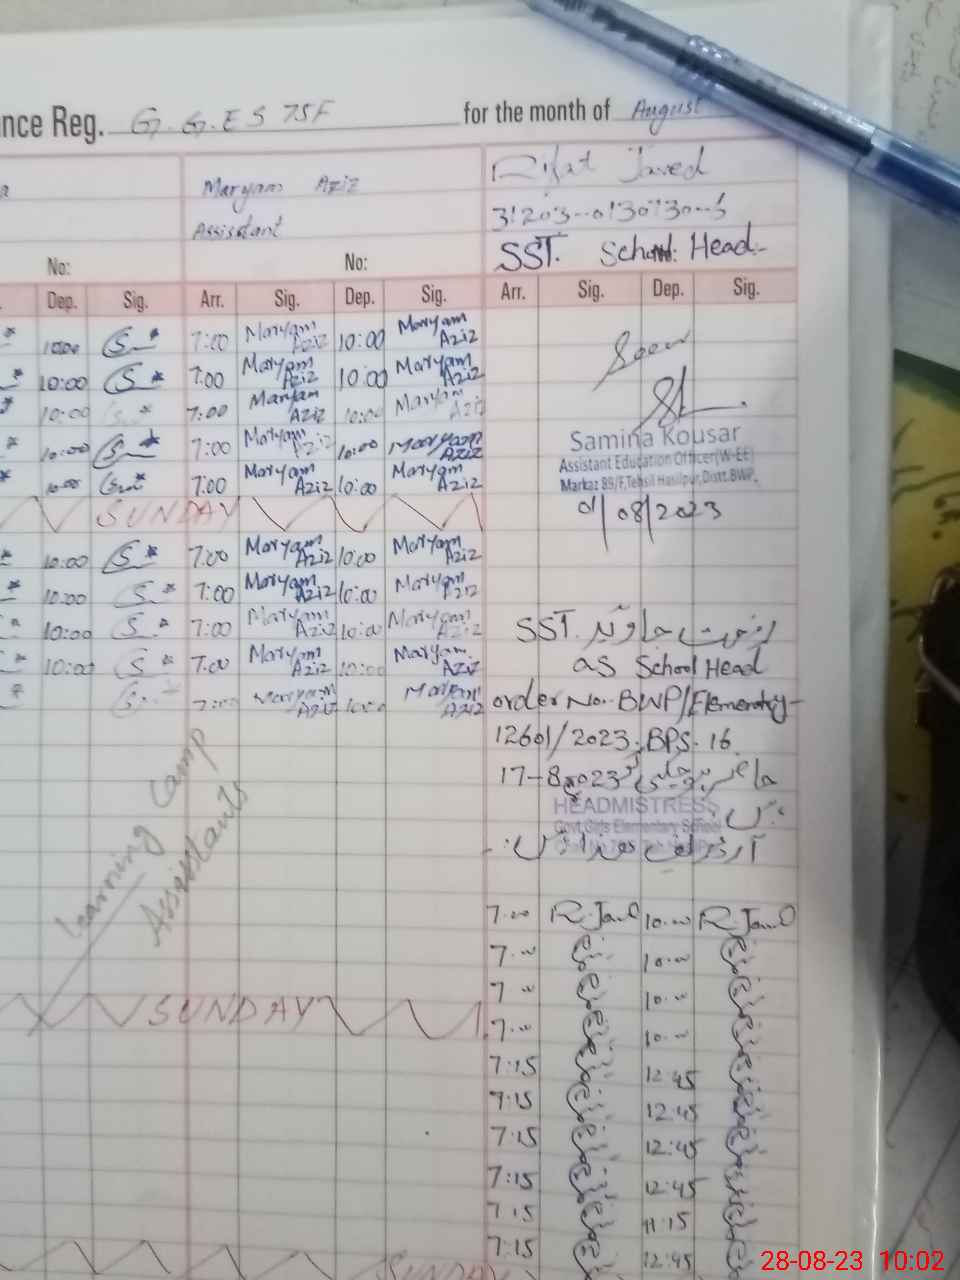 nce Reg. G.G.ES 75F for the month of August
Maryam Aziz
Assisstant
Rifat Javed
SST. School Head
No: No:
Dep. Sig. Arr. Sig. Dep. Sig. Arr. Sig. Dep. Sig.
10:00 S * 7:00 Maryam Aziz 10:00 Maryam Aziz
10:00 S * 7:00 Maryam Aziz 10:00 Maryam Aziz
10:00 S * 7:00 Maryam Aziz 10:00 Maryam Aziz
10:00 S * 7:00 Maryam Aziz 10:00 Maryam Aziz
10:00 * 7:00 Maryam Aziz 10:00 Maryam Aziz
Seen
Samina Kousar
Assistant Education Officer(W-EE)
Markaz 89/F,Tehsil Hasilpur,Distt.BWP.
/08/2023
SUNDAY
10:00 S * 7:00 Maryam Aziz 10:00 Maryam Aziz
10:00 S * 7:00 Maryam Aziz 10:00 Maryam Aziz
10:00 S * 7:00 Maryam Aziz 10:00 Maryam Aziz
10:00 S * 7:00 Maryam Aziz 10:00 Maryam Aziz
7:00 Maryam Aziz 10:00 Maryam Aziz
SST. رفعت جاوید
as School Head
order No. BWP/Elementry-
12601/2023, BPS-16
17-8-2023
HEADMISTRESS
Govt.Girls Elementary School
Learning Camp
Assistants
7:00 R.Javed 10:00 R.Javed
7:00 10:00
7:00 10:00
SUNDAY
7:00 10:00
7:15 12:45
7:15 12:45
7:15 12:45
7:15 12:45
7:15 11:15
7:15 12:45
SUNDAY
28-08-23 10:02